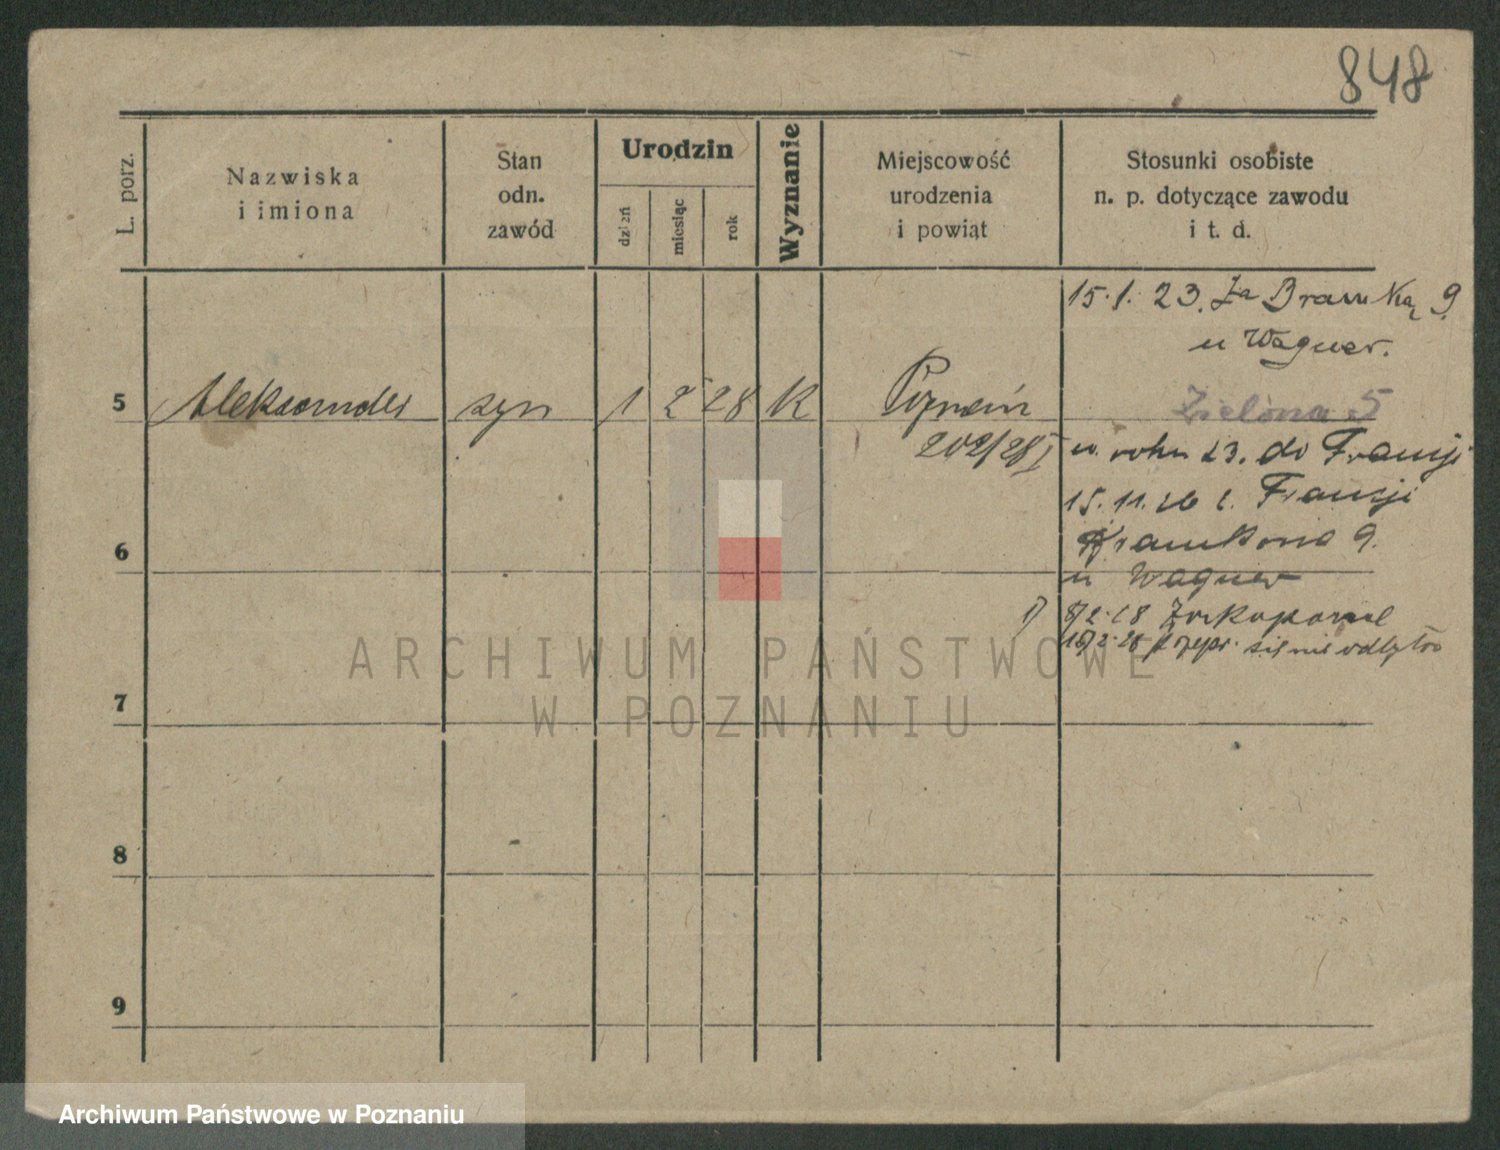 848
L. porz.
Nazwiska
i imiona
Stan
odn.
zawód
Urodzin
dzień
miesiąc
rok
Wyznanie
Miejscowość
urodzenia
i powiat
Stosunki osobiste
n. p. dotyczące zawodu
i t. d.
15. 1. 23. Za Bramką 9.
u Wagner.
5 Aleksander syn 1 2 28 K Poznań Zielona 5
202/28 I w roku 23. do Francji
15. 11. 26 z. Francji
9.
6
u Wagner
1) 8/2.28
16/2.28 się nie odbyło
7
8
9
ARCHIWUM PAŃSTWOWE
W POZNANIU
Archiwum Państwowe w Poznaniu